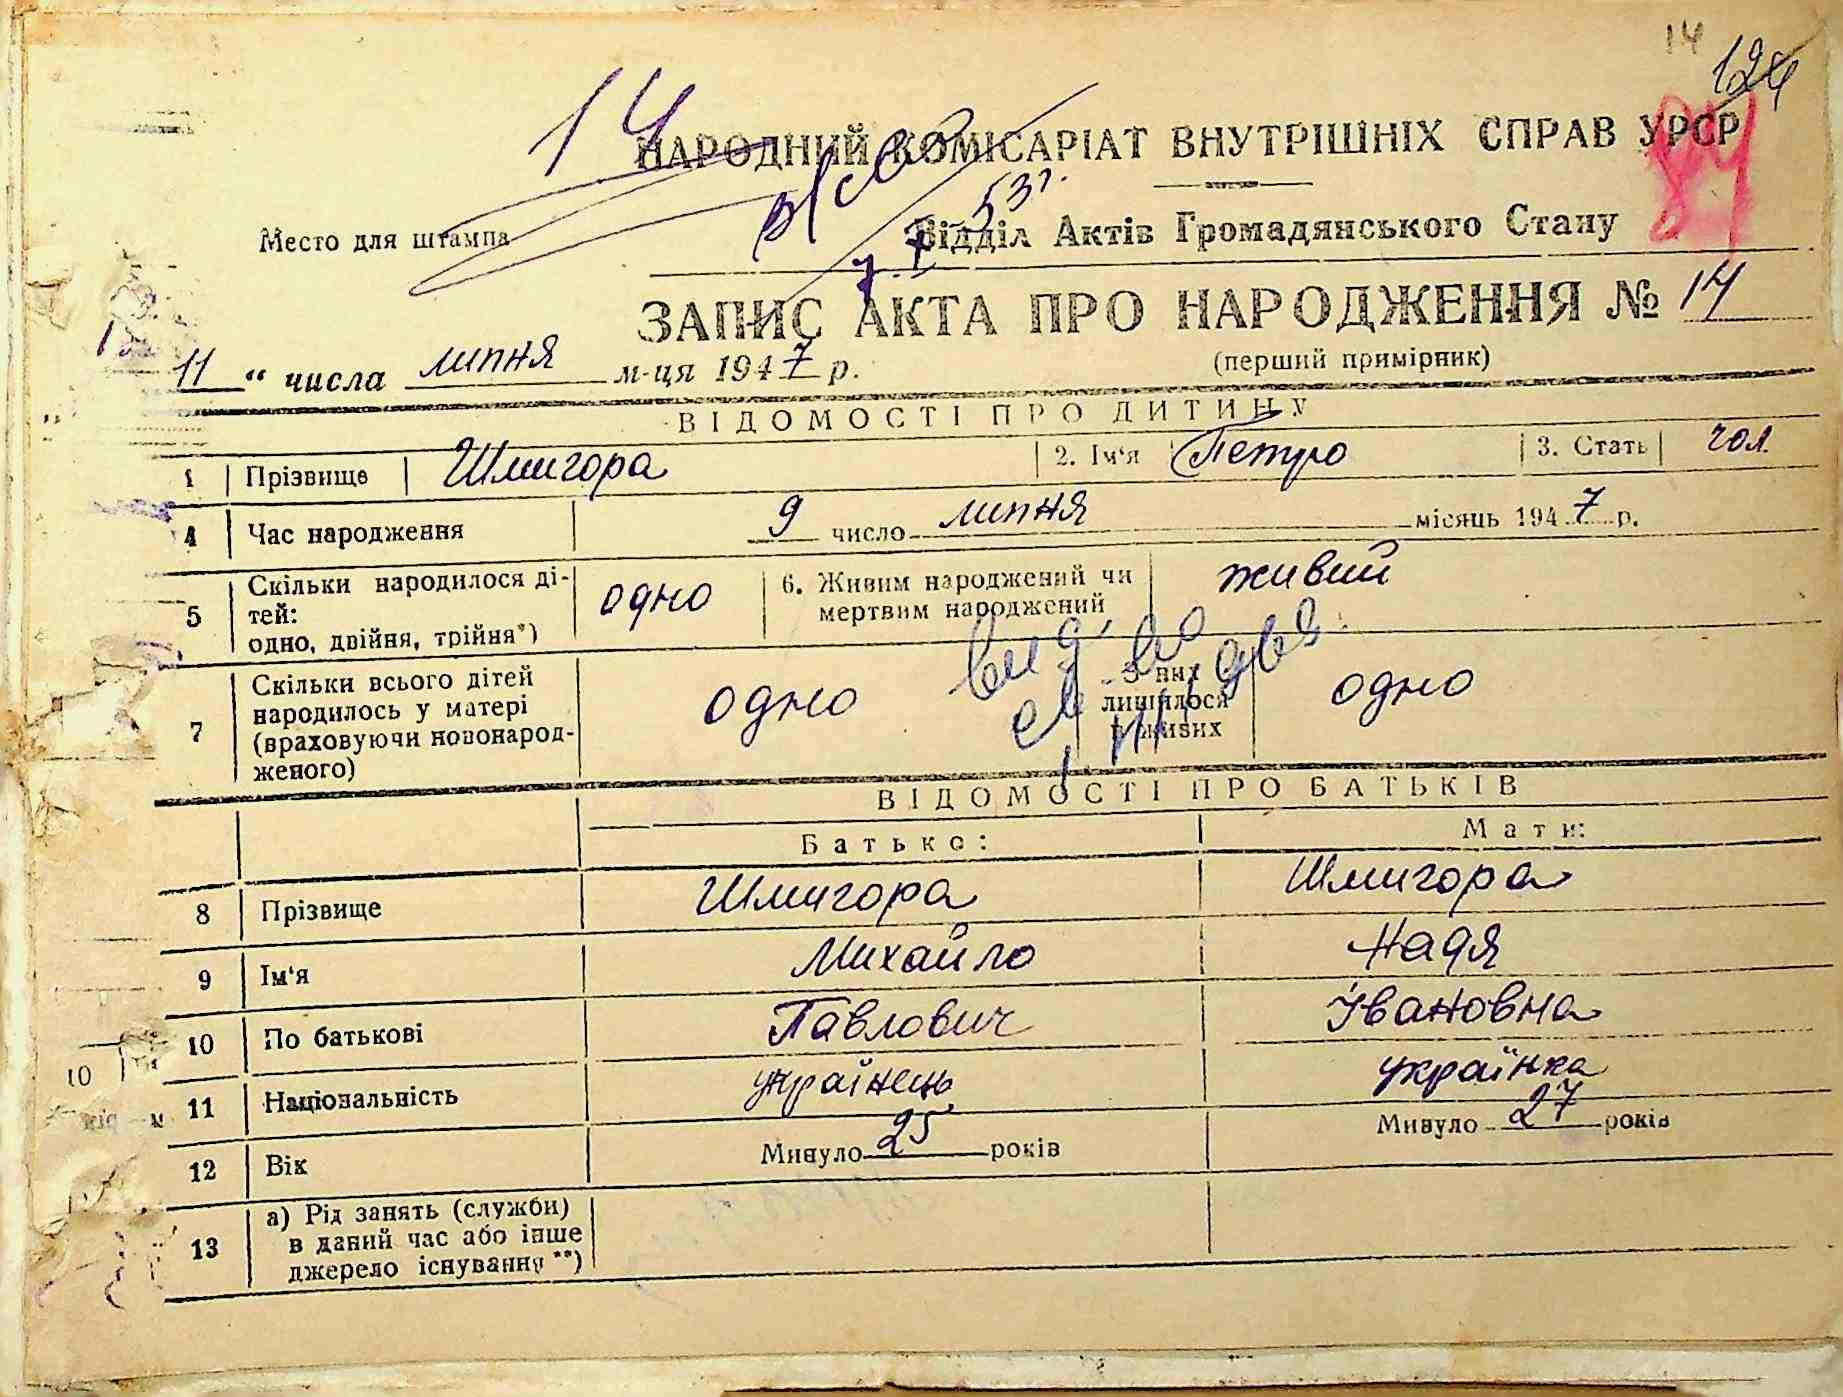 14
124
НАРОДНИЙ КОМІСАРІАТ ВНУТРІШНІХ СПРАВ УРСР
14
84
53г.
Место для штампа
Відділ Актів Громадянського Стану
ЗАПИС АКТА ПРО НАРОДЖЕННЯ № 14
(перший примірник)
11 “ числа липня м-ця 1947 р.
ВІДОМОСТІ ПРО ДИТИНУ
1 Прізвище Шмигора 2. Ім'я Петро 3. Стать чол.
4 Час народження 9 число липня місяць 1947 р.
5 Скільки народилося ді-
тей:
одно, двійня, трійня*) одно 6. Живим народжений чи
мертвим народжений живий
7 Скільки всього дітей
народилось у матері
(враховуючи новонарод-
женого) одно З них
лишилося
в живих одно
ВІДОМОСТІ ПРО БАТЬКІВ
Батько: Мати:
8 Прізвище Шмигора Шмигора
9 Ім'я Михайло Надя
10 По батькові Павлович Івановна
11 Національність українець українка
12 Вік Минуло 25 років Минуло 27 років
13 а) Рід занять (служби)
в даний час або інше
джерело існування **)
10